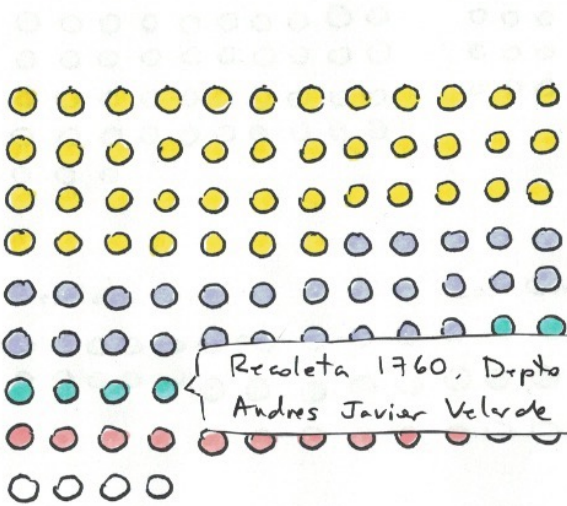 Recoleta 1760. Depto
Andres Javier Velarde